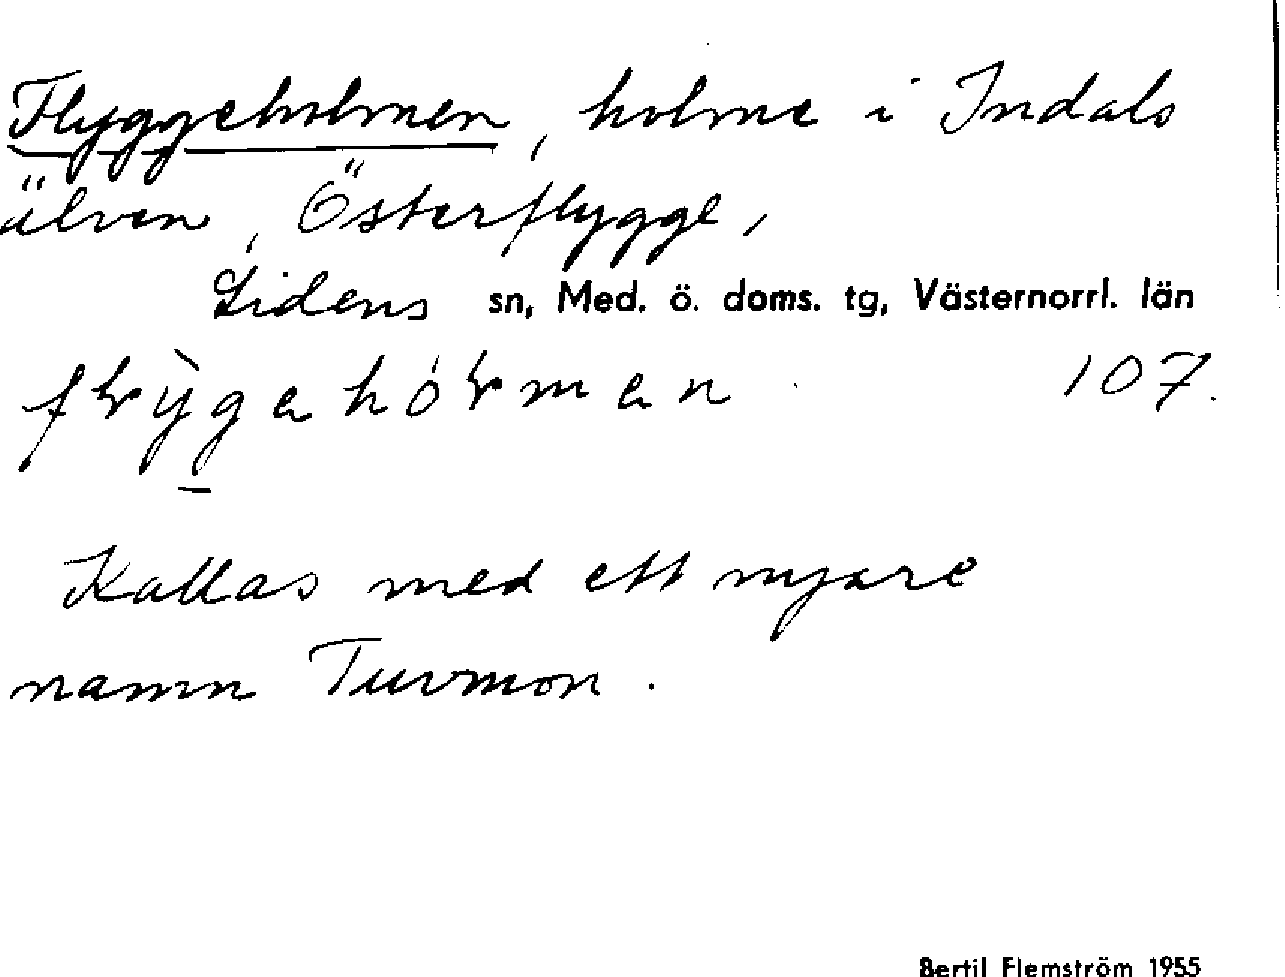 Flyggeholmen, holme i Indals
älven, Österflygge,
Lidens sn, Med. ö. doms. tg, Västernorrl. län
107.
Kallas med ett nyare
namn Turmon.
Bertil Flemström 1955